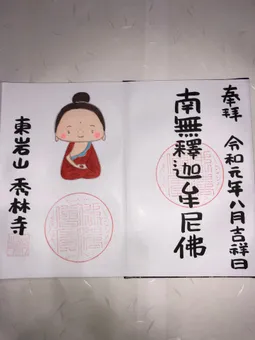 奉拝
令和元年八月吉祥日
南無釋迦牟尼佛
東岩山 香林寺